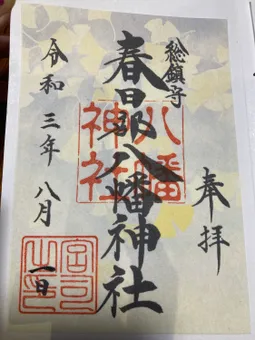 奉拝
総鎮守
春日部八幡神社
八幡
神社
令和三年八月一日
宮司之印